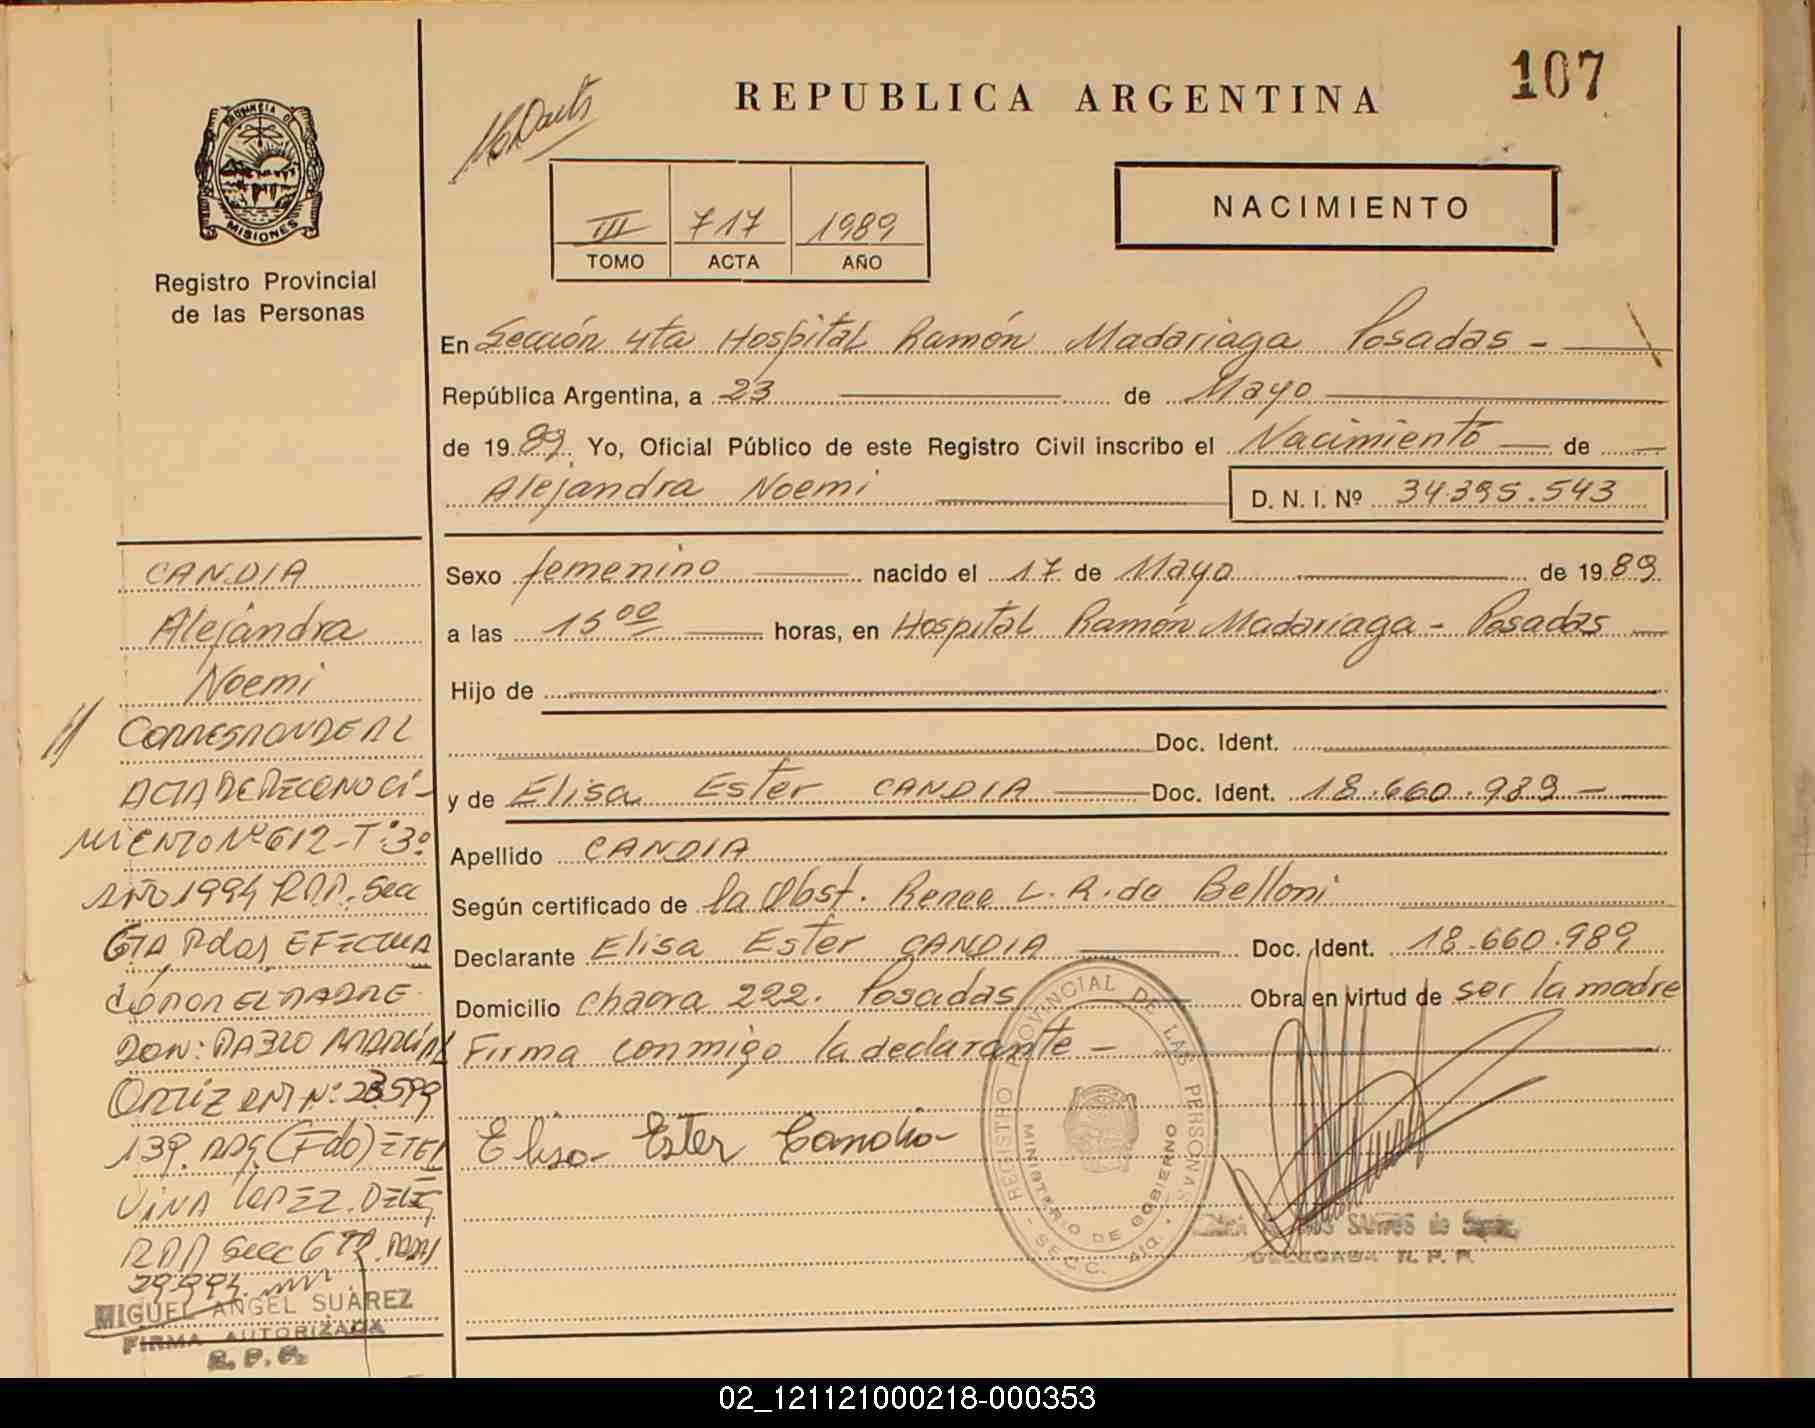 107
REPUBLICA ARGENTINA
PROVINCIA DE
MISIONES
Registro Provincial
de las Personas
III 717 1989
TOMO ACTA AÑO
NACIMIENTO
En Sección 4ta Hospital Ramón Madariaga Posadas -
República Argentina, a 23 de Mayo
de 1989. Yo, Oficial Público de este Registro Civil inscribo el Nacimiento de
Alejandra Noemi D. N. I. Nº 34.395.543
Sexo femenino nacido el 17 de Mayo de 1989
a las 15 00 horas, en Hospital Ramón Madariaga - Posadas
Hijo de
Doc. Ident.
y de Elisa Ester CANDIA Doc. Ident. 18.660.989 -
Apellido CANDIA
Según certificado de la Obst. Renee L. R. de Belloni
Declarante Elisa Ester CANDIA Doc. Ident. 18.660.989
Domicilio chacra 222. Posadas Obra en virtud de ser la madre
Firma conmigo la declarante -
Elisa Ester Candia
REGISTRO PROVINCIAL DE LAS PERSONAS
MINISTERIO DE GOBIERNO
SECC. 4ta.
SANTOS de
DELEGADA R. P. P.
CANDIA
Alejandra
Noemi
// CORRESPONDE AL
ACTA DE RECONOCI-
MIENTO Nº 612 - Tº: 3º
AÑO 1994 R.P.P. Secc
6TA Pdas EFECTUA
dó POR EL PADRE
DON: PABLO MARCIAL
ORTIZ DNI Nº: 23.599
139. Pdas (Fdo) ETEL
VINA LOPEZ. DELEG
RPP Secc 6ta. Pdas
MIGUEL ANGEL SUAREZ
FIRMA AUTORIZADA
R. P. P.
02_121121000218-000353